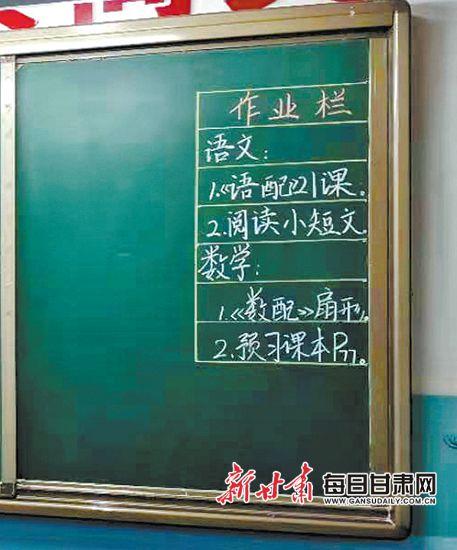 作业栏
语文：
1.《语配》21课。
2.阅读小短文。
数学：
1.《数配》扇形。
2.预习课本P77。
新甘肃
每日甘肃网
WWW.GANSUDAILY.COM.CN